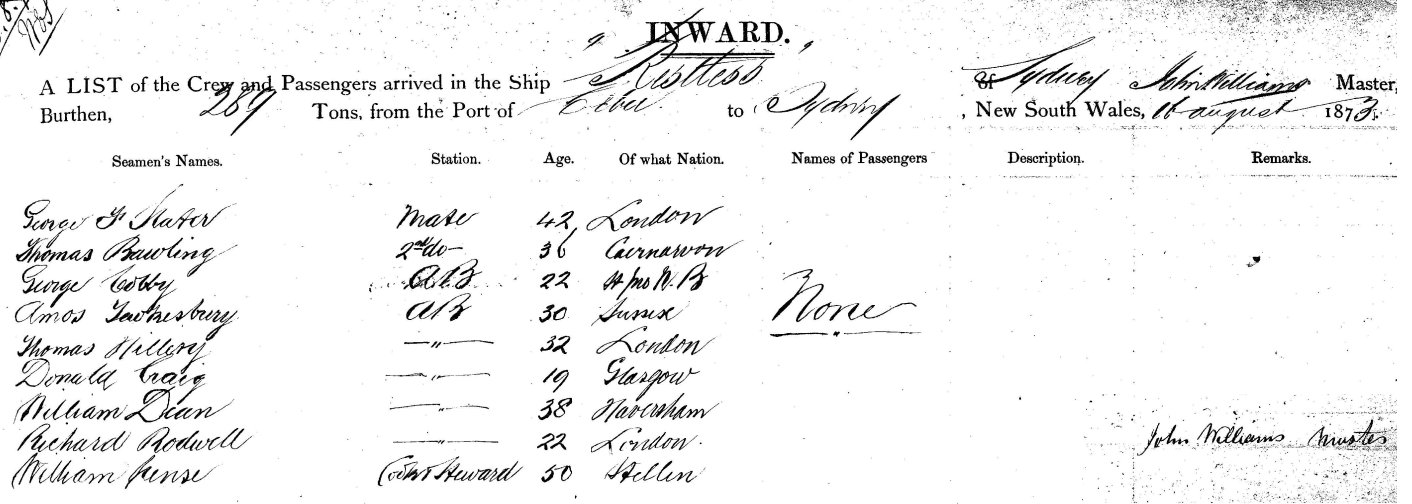 INWARD.
A LIST of the Crew and Passengers arrived in the Ship "Restless" of Sydney John Williams Master,
Burthen, 289 Tons, from the Port of Cebu to Sydney, New South Wales, 16 august 1873.
Seamen's Names. Station. Age. Of what Nation. Names of Passengers Description. Remarks.
George F Slater Mate 42 London
Thomas Bawling 2nd do 36 Caernarvon
George Cobby AB 22 St Jno N.B
Amos Tewkesbury AB 30 Sussex None
Thomas Hillery —"— 32 London
Donald Craig —"— 19 Glasgow
William Dean —"— 38 Haversham
Richard Rodwell —"— 22 London John Williams Master
William Steward 50